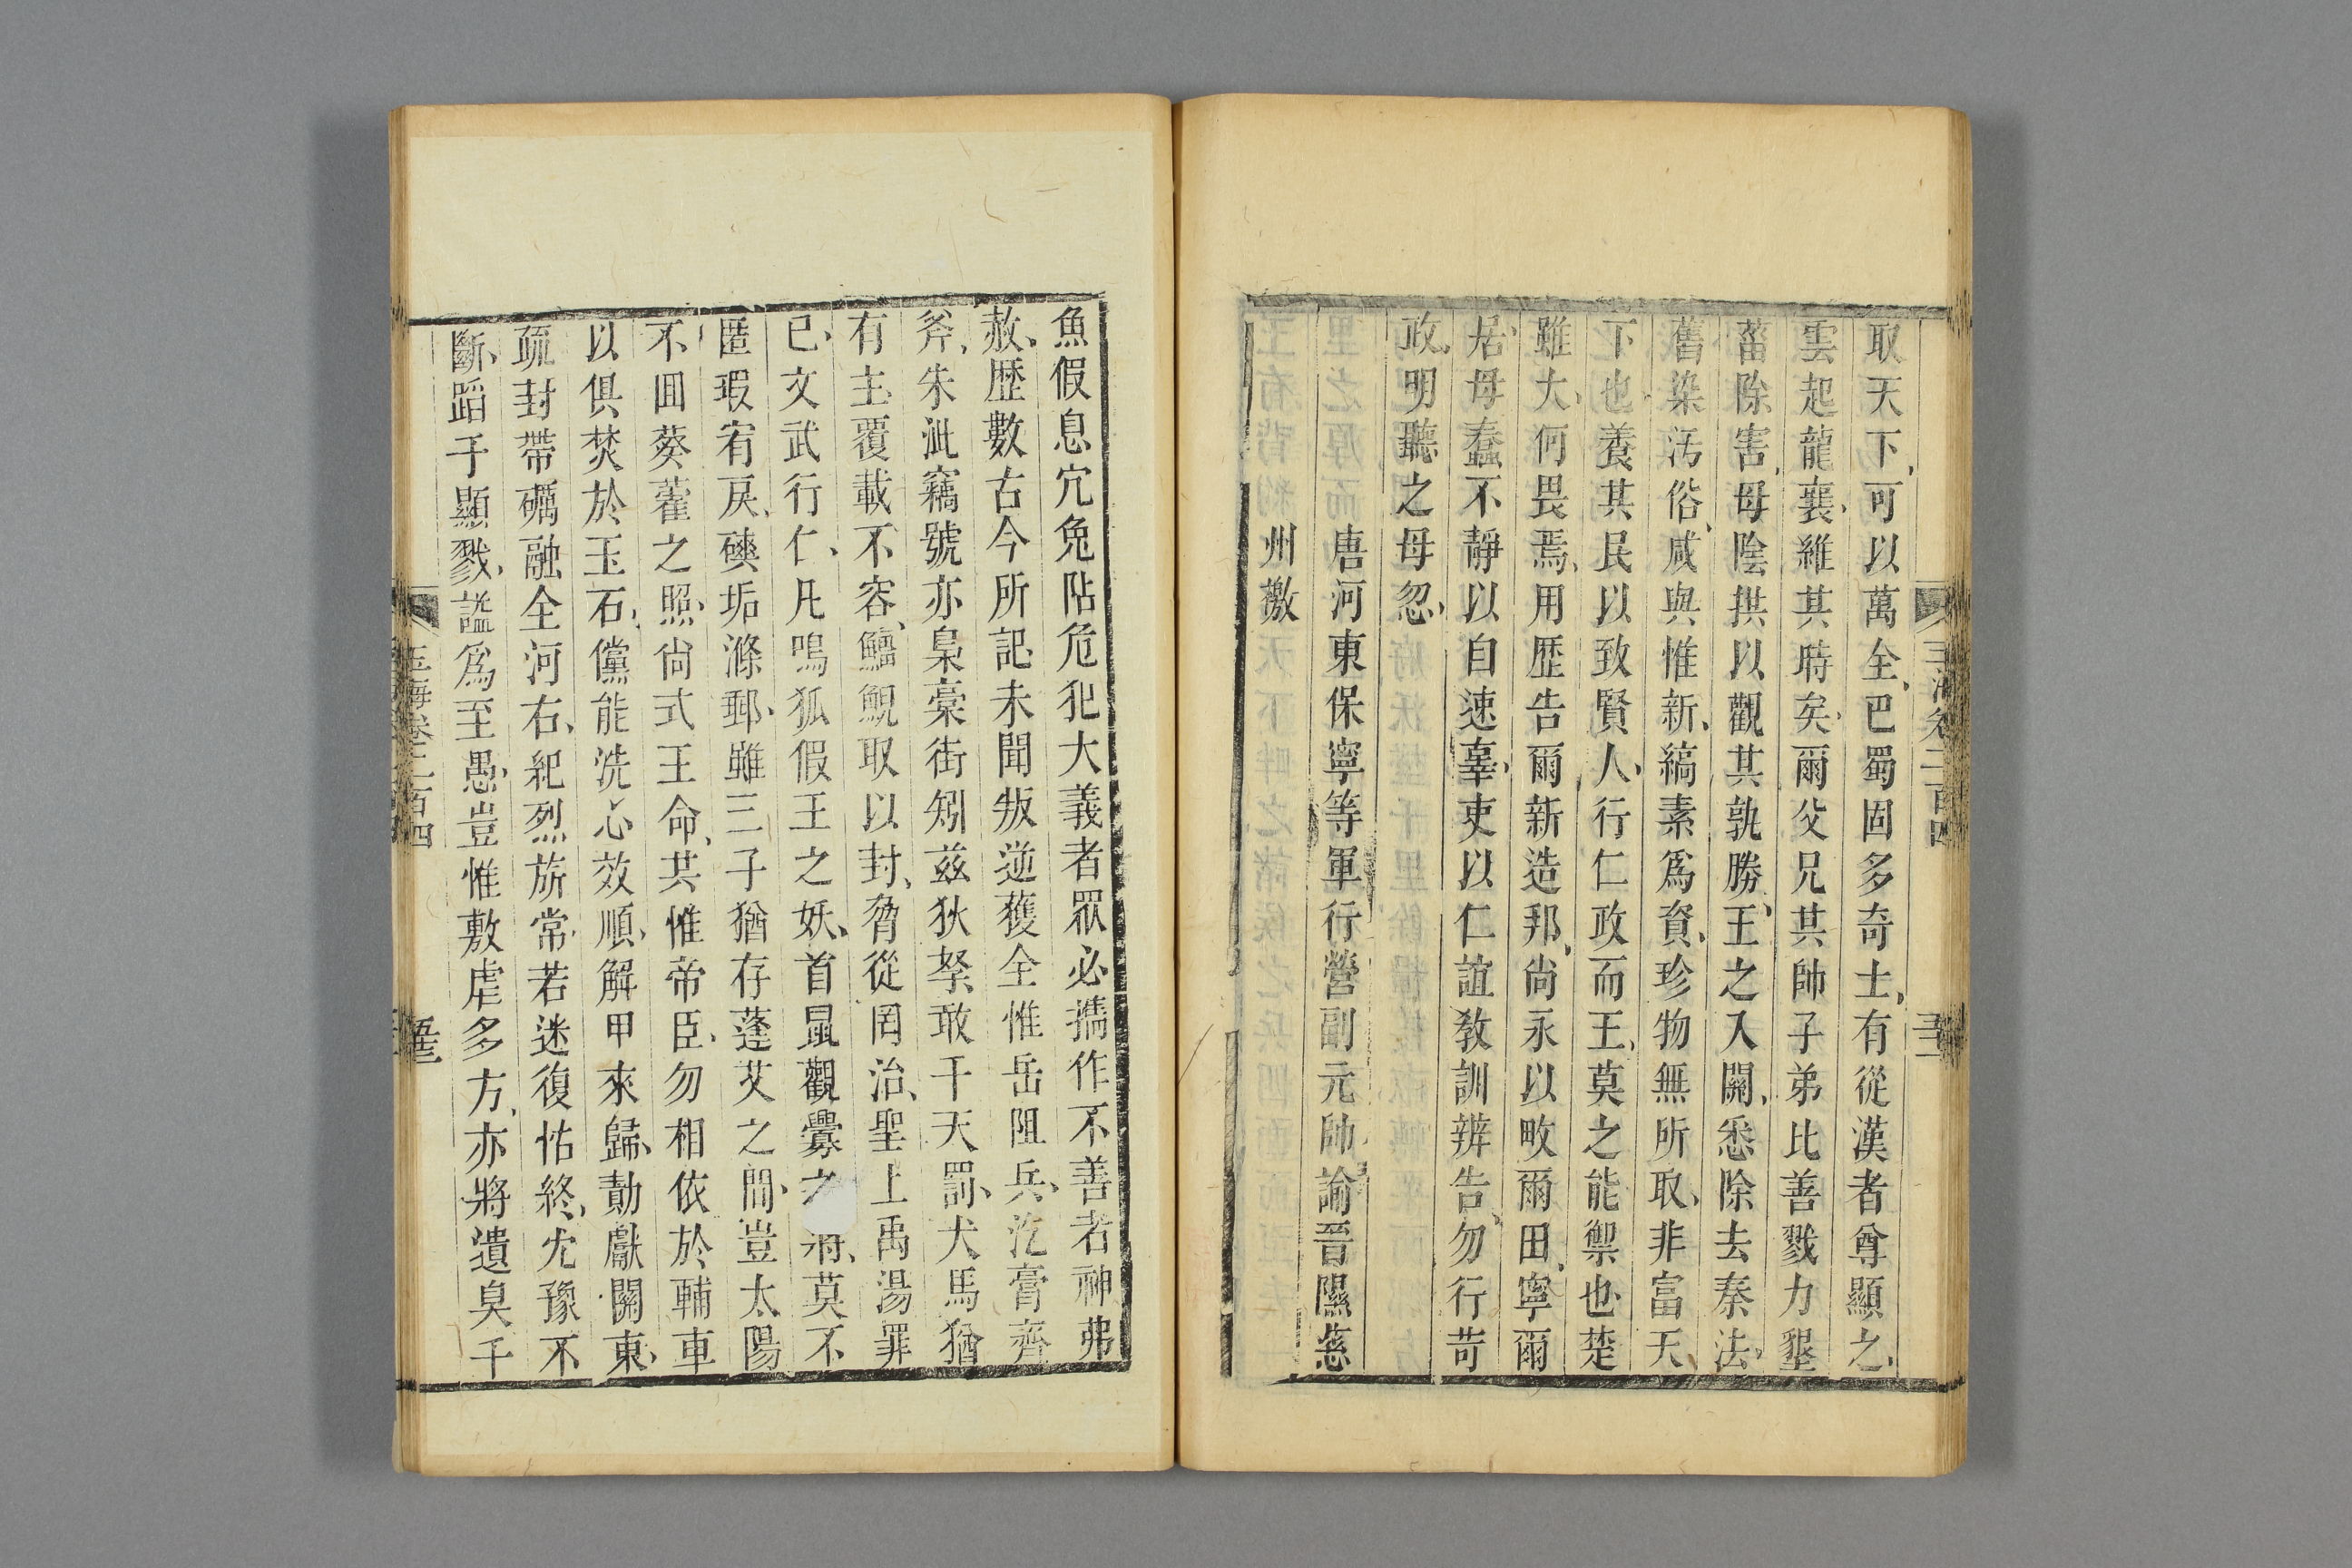 玉海卷二百四
取天下可以萬全巴蜀固多奇士有從漢者尊顯之
雲起龍襄維其時矣爾父兄其帥子弟比善戮力墾
菑除害毋陰拱以觀其孰勝王之入關悉除去秦法
舊染汚俗咸與惟新縞素爲資珍物無所取非富天
下也養其民以致賢人行仁政而王莫之能禦也楚
雖大何畏焉用歴告爾新造邦尚永以畋爾田寧爾
居毋蠢不靜以自速辜吏以仁誼敎訓辨告勿行苛
政明聽之毋忽
唐河東保寧等軍行營副元帥諭晉隰慈
州檄
魚假息宂兔阽危犯大義者眾必攜作不善者神弗
赦歴數古今所記未聞叛逆獲全惟岳阻兵汔膏齊
斧朱泚竊號亦梟槀街矧兹狄孥敢干天罰犬馬猶
有主覆載不容鱷鯢取以封脅從罔治聖上禹湯罪
已文武行仁凡鳴狐假王之妖首鼠觀釁之將莫不
匿瑕宥戾磢垢滌郵雖三子猶存蓬艾之間豈太陽
不囬葵藿之照尙式王命共惟帝臣勿相依於輔車
以俱焚於玉石儻能洗心效順解甲來歸勣獻關東
疏封帶礪融全河右紀烈旂常若迷復怙終冘豫不
斷蹈于顯戮謚爲至愚豈惟敷虐多方亦將遺臭千
玉海卷二百四